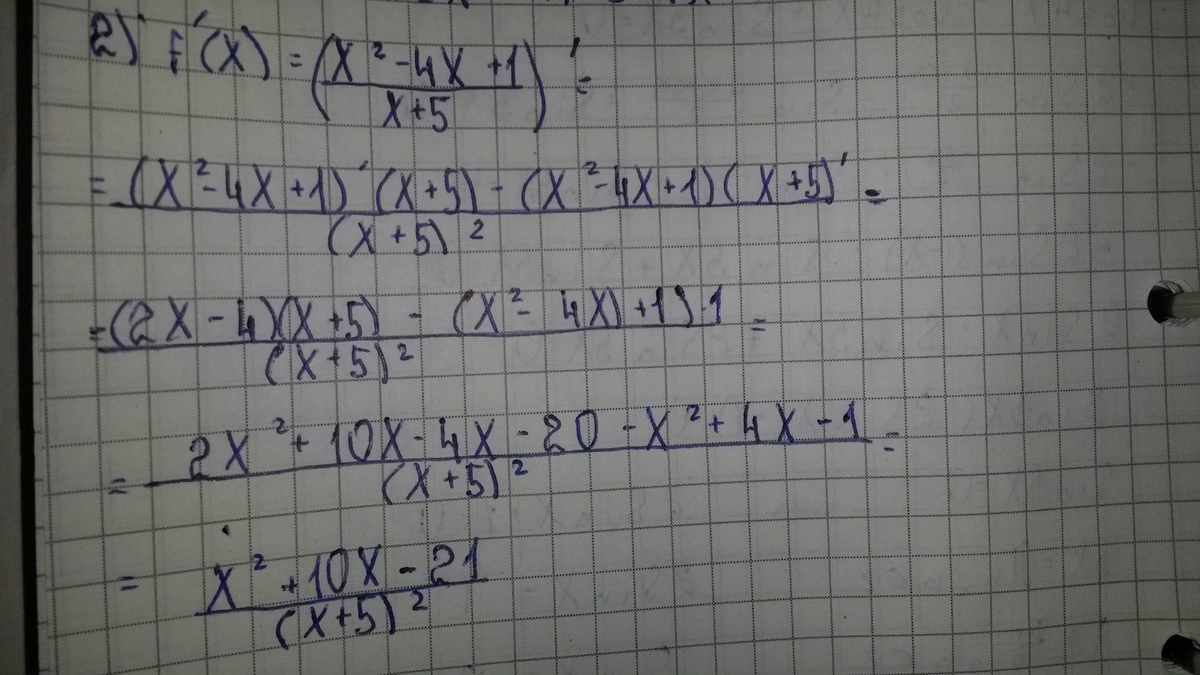 2) f'(x) = ((x² - 4x + 1)/(x + 5))' =
= ((x² - 4x + 1)'(x + 5) - (x² - 4x + 1)(x + 5)')/(x + 5)² =
= ((2x - 4)(x + 5) - (x² - 4x) + 1) · 1)/(x + 5)² =
= (2x² + 10x - 4x - 20 - x² + 4x - 1)/(x + 5)² =
= (x² + 10x - 21)/(x + 5)²